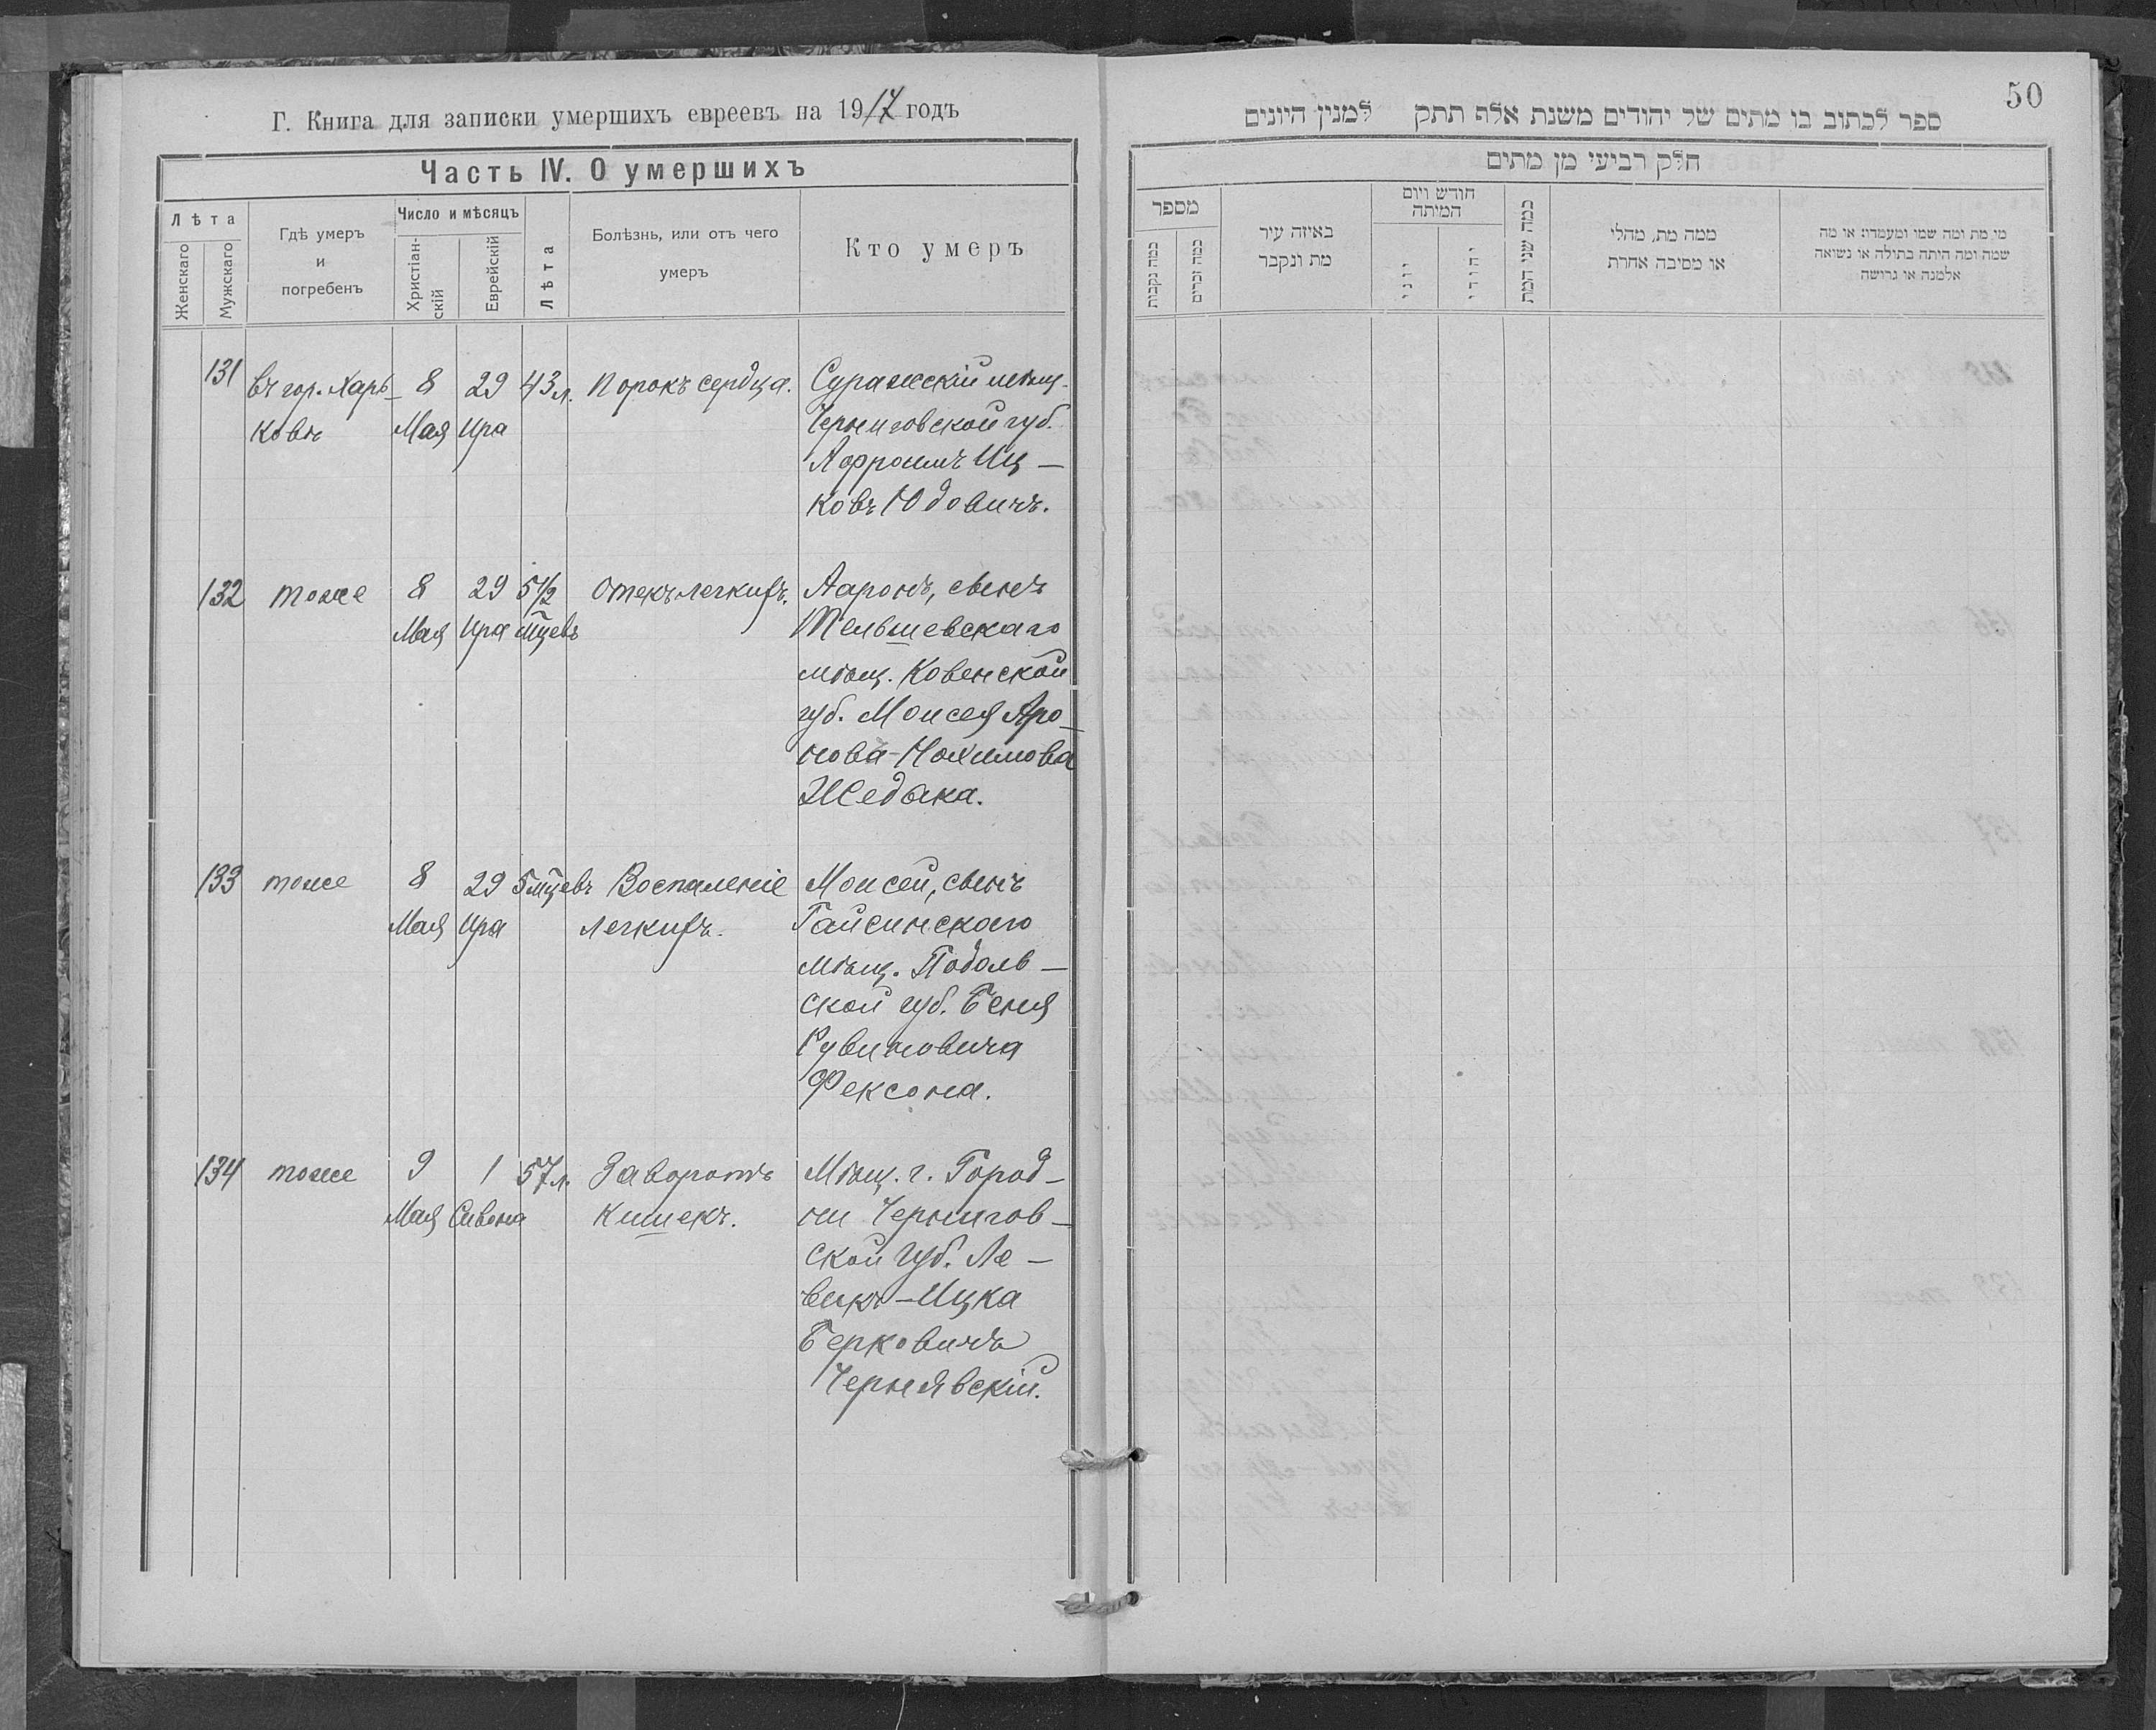 Г. Книга для записки умершихъ евреевъ на 1917 годъ
Часть IV. О умершихъ
Лѣта
Женскаго
Мужскаго
Гдѣ умеръ
и
погребенъ
Число и мѣсяцъ
Христіан-
скій
Еврейскій
Лѣта
Болѣзнь, или отъ чего
умеръ
Кто умеръ
131 въ гор. Харь- 8 29 43 л. Порокъ сердца. Суражскій мѣщ.
ковѣ Мая Ира Черниговской губ.
Афроимъ Иц-
ковъ Юдовичъ.
132 тоже 8 29 5 1/2 Отекъ легкихъ. Ааронъ, сынъ
Мая Ира мцевъ Тельшевскаго
мѣщ. Ковенской
губ. Моисея Аро-
нова-Нохимова
Шедака.
133 тоже 8 29 5 мцевъ Воспаленіе Моисей, сынъ
Мая Ира легкихъ. Гайсинскаго
мѣщ. Подоль-
ской губ. Беня
Рувиновича
Фексона.
134 тоже 9 1 57 л. Заворотъ Мѣщ. г. Город-
Мая Сивона кишекъ. ни Чернигов-
ской губ. Ле-
викъ-Ицка
Берковичъ
Чернявскій.
50
ספר לכתוב בו מתים של יהודים משנת אלף תתק למנין היונים
חלק רביעי מן מתים
מספר
כמה נקבות
כמה זכרים
באיזה עיר
מת ונקבר
חודש ויום
המיתה
יווני
יהודי
כמה שני המת
ממה מת, מהלי
או מסיבה אחרת
מי מת ומה שמו ומעמדו: או מה
שמה ומה היתה בתולה או נשואה
אלמנה או גרושה